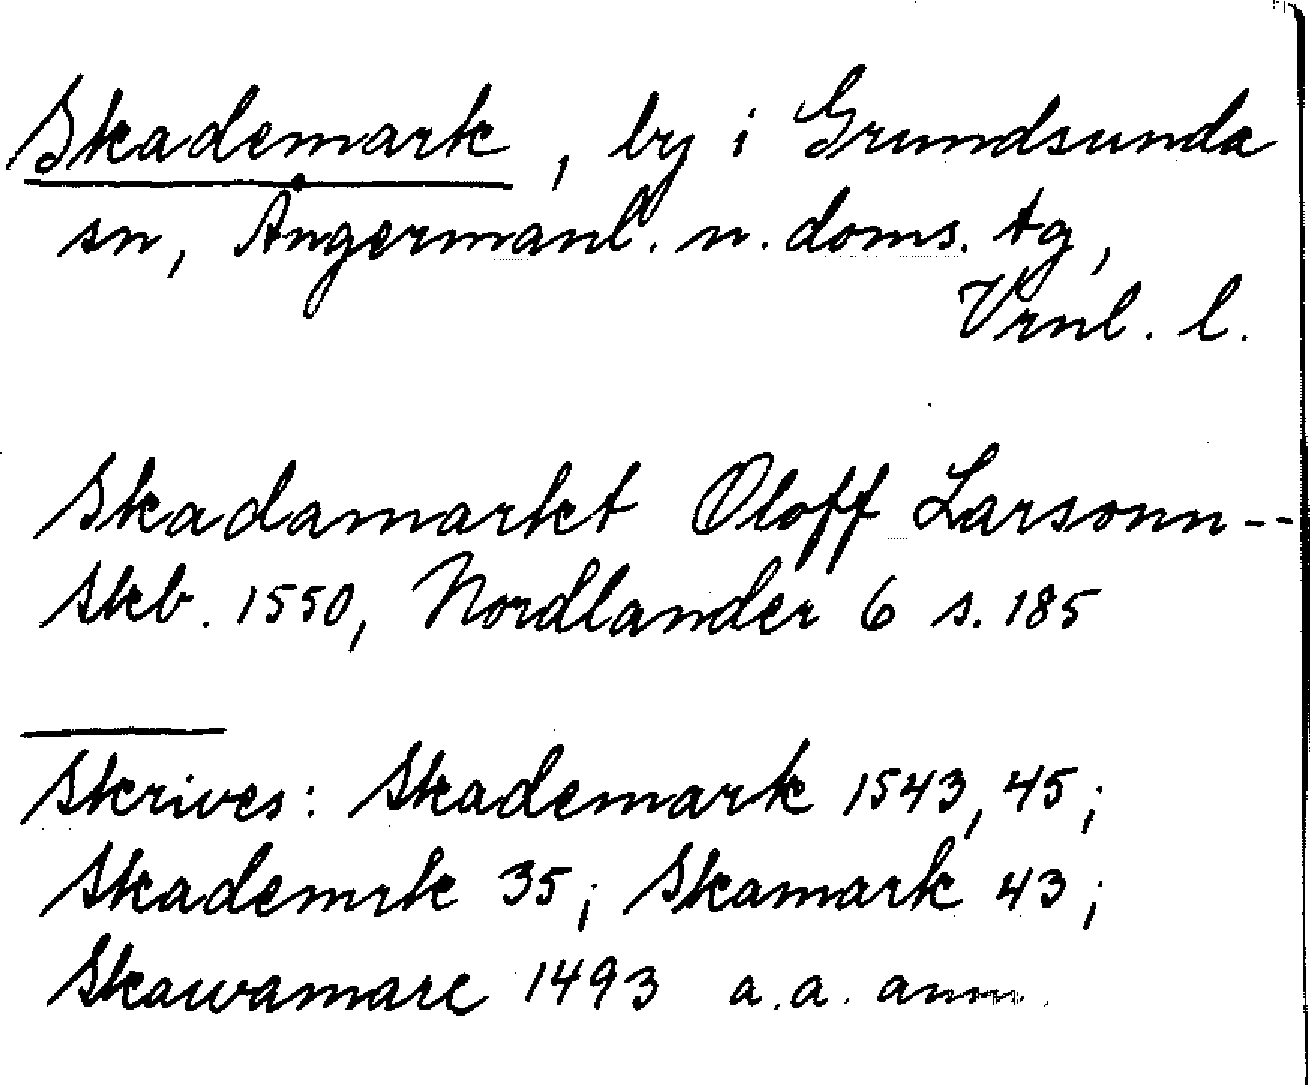 Skademark, by i Grundsunda
sn, Ångermanl. n. doms. tg,
Vrnl. l.
Skadamarkt Oloff Larsonn--
Skb. 1550, Nordlander 6 s. 185
Skrives: Skademark 1543, 45;
Skademrk 35; Skamark 43;
Skawamarc 1493 a.a. anm.